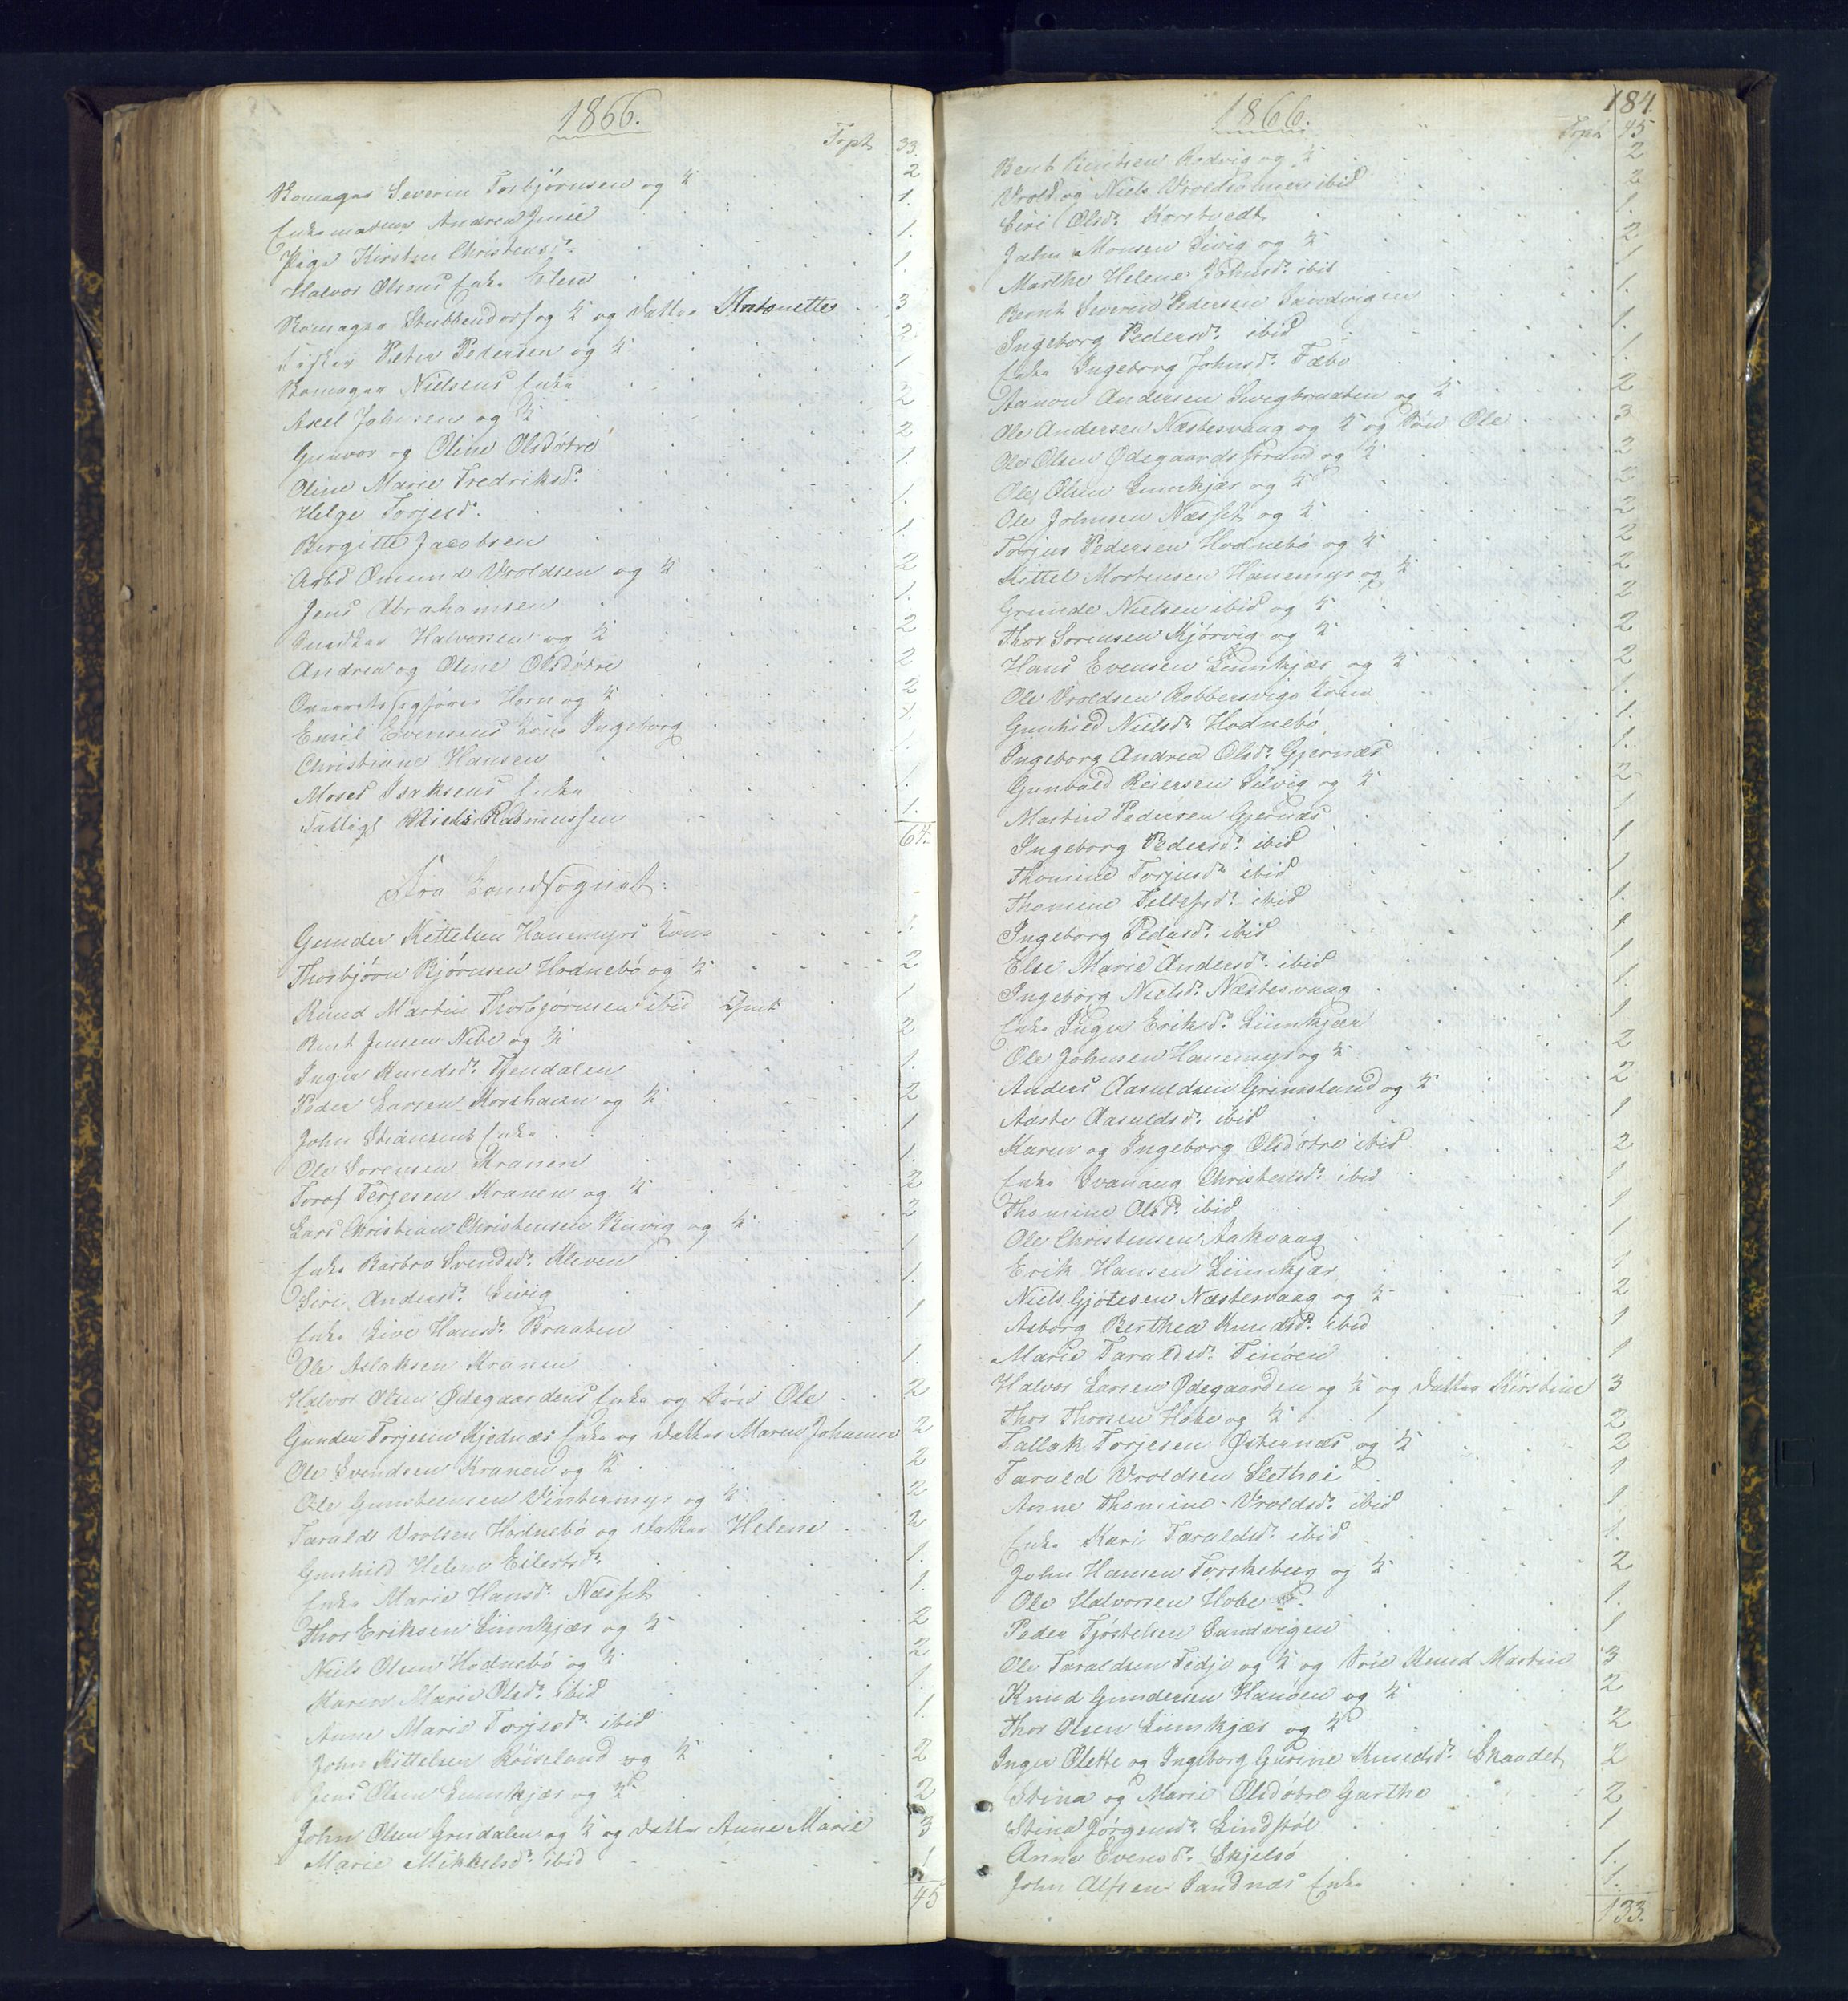 1866.
Trpt 33.
Skomager Severin Torbjørnsen og K 2
Enkemadame Andrea Juell 1.
Pige Kirsten Christensdr 1.
Halvor Olsens Enke Elen 1.
Skomager Stubbendorf og K og Datter Antonette 3
Fisker Peter Pedersen og K 2.
Skomager Nielsens Enke 1
Axel Johnsen og K 2
Gunvor og Oline Olsdøtre 2
Oline Marie Fredriksdr 1.
Helge Torjesdr. 1.
Birgitte Jacobsen 1.
Arbd Omund Vroldsen og K 2
Jens Abrahamsen 1.
Snedker Halvorsen og K 2
Andrea og Oline Olsdøtre 2
Overretssagfører Horn og K 2
Emil Evensens Kone Ingeborg 1.
Christiane Hansen 1.
Moses Isaksens Enke 1.
Fattigl Niels Rasmussen 1.
64.
Fra Landsognet:
Gunder Kittelsen Hanemyrs Kone 1
Thorbjørn Bjørnsen Hodnebø og K 2
Knud Martin Thorbjørnsen ibid 1
Bent Jensen Nibe og K 2
Inger Knudsdr. Tjendalen 1.
Peder Larsen Korshavn og K 2
John Stiansens Enke 1
Ole Sørensen Kranen 1.
Torof Terjesen Kranen og K 2
Lars Christian Christensen Risvig og K 2
Enke Barbro Svendsdr. Kleven 1
Siri Andersdr. Sivig 1.
Enke Live Hansdr. Braaten 1
Ole Aslaksen Kranen 1.
Halvor Olsen Ødegaardens Enke og Søn Ole 2
Gunder Torjesen Kjednæs Enke og Datter Maren Johanne 2
Ole Svendsen Kranen og K 2
Ole Gunsteensen Vintermyr og K 2
Tarald Vrolsen Hodnebø og Datter Helene 2
Gunhild Helene Eilertsdr. 1.
Enke Marie Hansdr. Næsset 1.
Thor Eriksen Limkjær og K 2
Niels Olsen Hodnebø og K 2
Karen Marie Olsdr. ibid 1.
Anne Marie Torjesdr. ibid 1.
John Kittelsen Røiseland og K 2
Jens Olsen Limkjær og K 2
John Olsen Grødalen og K og Datter Anne Marie 3
Marie Mikkelsdr. ibid 1.
45
184.
1866.
Trpt 45
Bent Knudsen Rodvig og K 2
Vrold og Niels Vroldsønner ibid 2
Siri Olsdr. Korstvedt 1.
John Monsen Sivig og K 2
Marthe Helene Johnsdr. ibid 1.
Bernt Severin Pedersen Sandvigen 1.
Ingeborg Pedersdr. ibid 1.
Enke Ingeborg Johnsdr. Fæbo 1.
Aanon Andersen Sivigbraaten og K 2
Ole Andersen Næstesvaag og K og Søn Ole 3
Ole Olsen Ødegaards Strand og K 2
Ole Olsen Limkjær og K 2
Ole Johnsen Næsset og K 2
Torjus Pedersen Hodnebø og K 2
Kittel Mortensen Hanemyr og K 2
Grunde Nielsen ibid og K 2
Thor Sørensen Kjørvig og K 2
Hans Evensen Limkjær og K 2
Ole Vroldsen Robbersvigs Kone 1.
Gunhild Nielsdr. Hodnebø 1.
Ingeborg Andrea Olsdr. Gjernæs 1.
Gunvald Reiersen Silvig og K 2
Martin Pedersen Gjernæs 1
Ingeborg Pedersdr. ibid 1
Thomine Torjusdr. ibid 1
Thomine Tellefsdr. ibid 1.
Ingeborg Pedersdr. ibid 1
Else Marie Andersdr. ibid 1
Ingeborg Nielsdr. Næstesvaag 1.
Enke Inger Eriksdr. Limkjær 1
Ole Johnsen Hanemyr og K 2
Anders Aasuldsen Grimsland og K 2
Aaste Aasuldsdr. ibid 1
Karen og Ingeborg Olsdøtre ibid 2
Enke Svanaug Christensdr. ibid 1
Thomine Olsdr. ibid 1
Ole Christensen Aakvaag 1
Erik Hansen Limkjær 1
Niels Gjøtesen Næstesvaag og K 2
Asborg Berthea Knudsdr. ibid 1
Marie Taraldsdr. Finøen 1
Halvor Larsen Ødegaarden og K og Datter Kirstine 3
Thor Thorsen Hobe og K 2
Tallak Torjesen Østernæs og K 2
Tarald Vroldsen Slethei 1
Anne Thomine Vroldsdr. ibid 1
Enke Kari Taraldsdr. ibid 1.
John Hansen Torskeberg og K 2
Ole Halvorsen Hobe 1.
Peder Tjøstelsen Sandvigen 1
Ole Taraldsen Fedje og K og Søn Knud Martin 3
Knud Gundersen Hanøen og K 2
Thor Olsen Limkjær og K 2
Inger Olette og Ingeborg Gurine Knudsdr. Skaadet 2
Stina og Marie Olsdøtre Garthe 2
Stina Jørgensdr. Lindstøl 1
Anne Evensdr. Skjelsø 1.
John Alfsen Sandnæs Enke 1.
133.